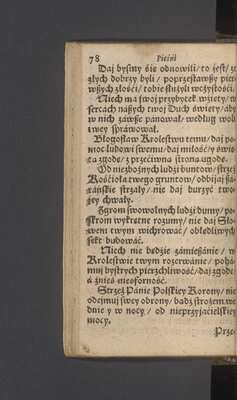 78 Pieśń
Daj byśmy śie odnowili / to jest / z
złych dobrzy byli / poprzestawszy pier-
wszych złości / tobie służyli w czystości.
Niech ma swoj przybytek wzięty / w
sercach naszych twoy Duch święty / aby
w nich zawsze panował / według woli
twey sprawował.
Błogosław Krolestwu temu / daj po-
moc ludowi swemu / daj miłość y świę-
tą zgodę / z przeciwną stroną ugodę.
Od niezbożnych ludzi buntow / strzeż
Kościoła twego gruntow / odbijaj ßa-
tańskie strzały / nie daj burzyć two-
jey chwały.
Zgrom swowolnych ludzi dumy / po-
skrom wykrętne rozumy / nie daj Sło-
wem twym wichrować / obłędliwych
sekt budować.
Niech nie będzie zamießánie / w
Krolestwie twym rozerwánie / poha-
muj bystrych pierzchliwość / daj zgodę
a znieś nieforność.
Strzeż Panie Polskiey Korony / nie
odejmuj swey obrony / bądź strożem we
dnie y w nocy / od nieprzyjacielskiey
mocy.
Prze-